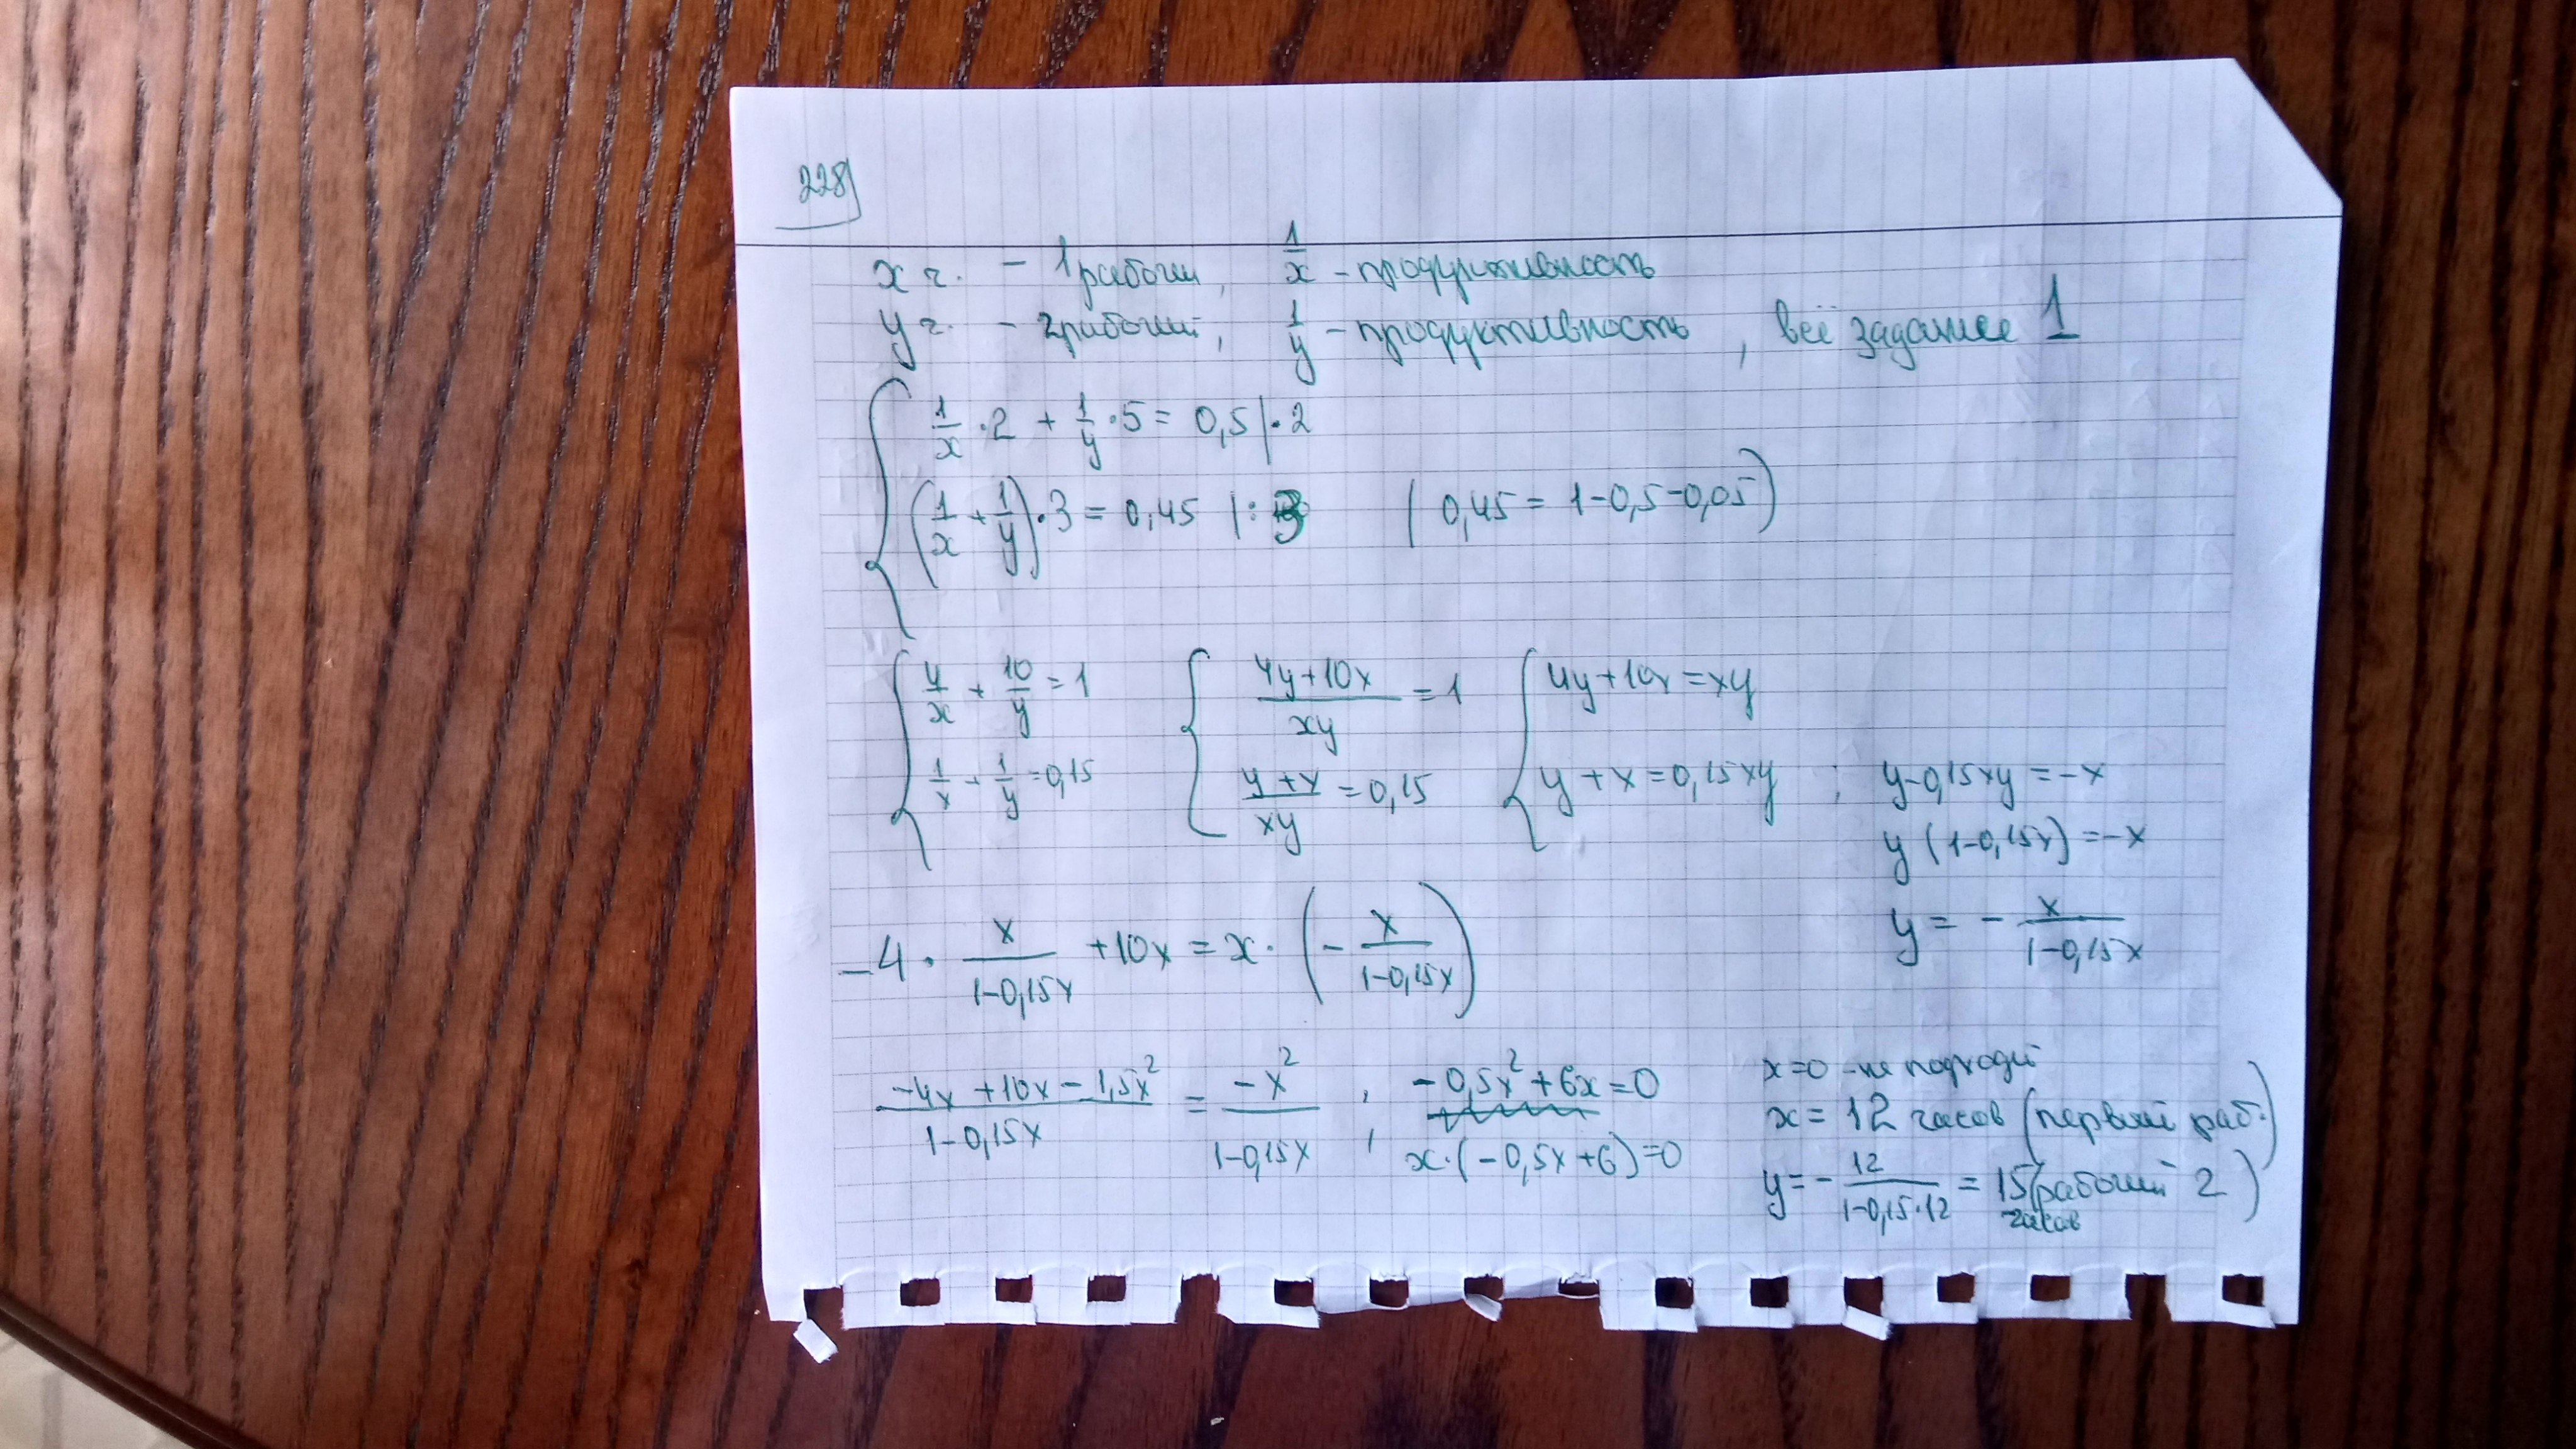 228)
x ч. - 1 рабочий, 1/x - продуктивность
y ч. - 2 рабочий, 1/y - продуктивность, всё задание 1
1/x · 2 + 1/y · 5 = 0,5 | · 2
(1/x + 1/y) · 3 = 0,45 | : 3 (0,45 = 1-0,5-0,05)
4/x + 10/y = 1 (4y+10x)/xy = 1 4y+10x = xy
1/x + 1/y = 0,15 (y+x)/xy = 0,15 y + x = 0,15xy ; y-0,15xy = -x
y (1-0,15x) = -x
y = - x/(1-0,15x)
-4 · x/(1-0,15x) + 10x = x · (- x/(1-0,15x))
(-4x + 10x - 1,5x²)/(1-0,15x) = -x²/(1-0,15x) , -0,5x² + 6x = 0
x · (-0,5x + 6) = 0
x=0 - не подходит
x = 12 часов (первый раб.)
y = - 12/(1-0,15·12) = 15 часов (рабочий 2)